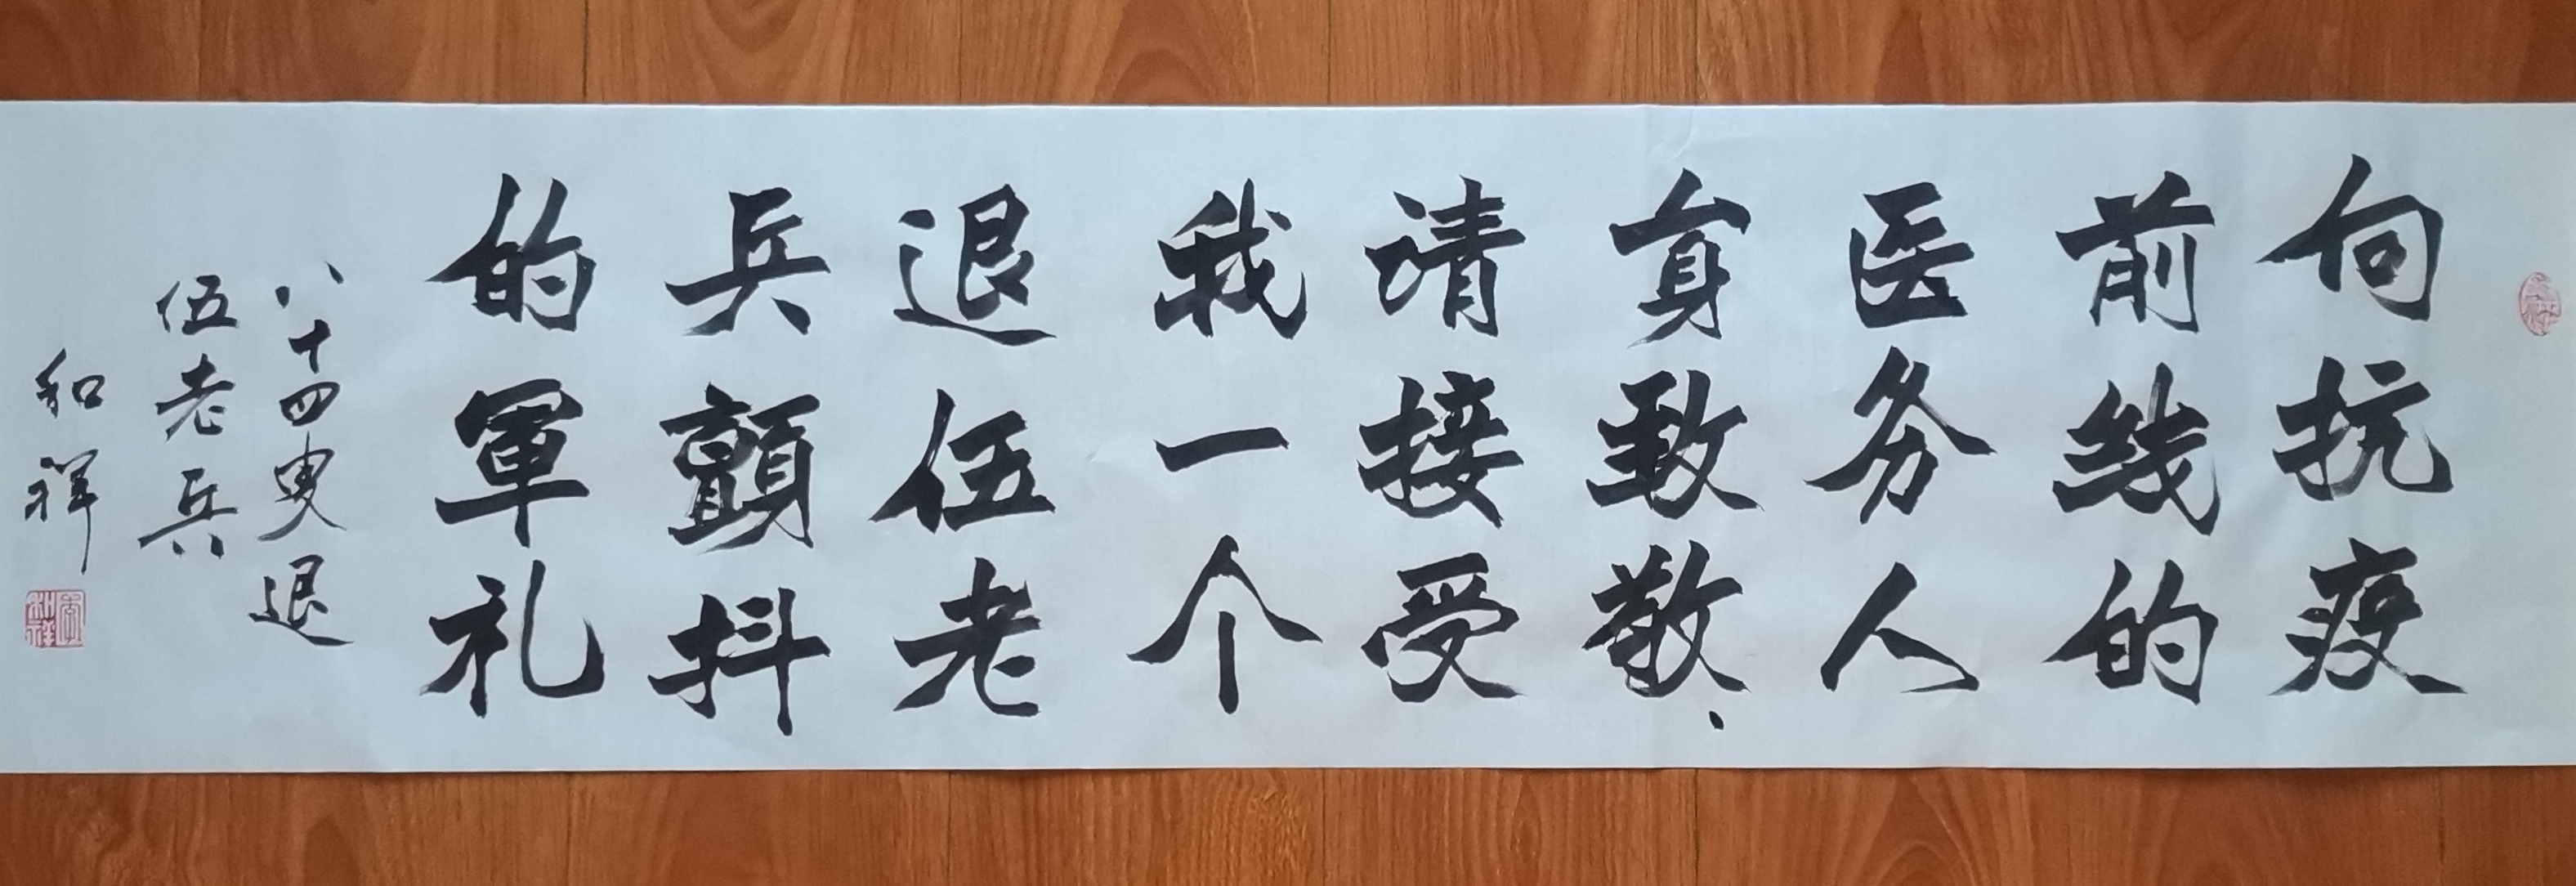 向抗疫
前线的
医务人
员致敬、
请接受
我一个
退伍老
兵颤抖
的軍礼
八十四叟退
伍老兵
和祥